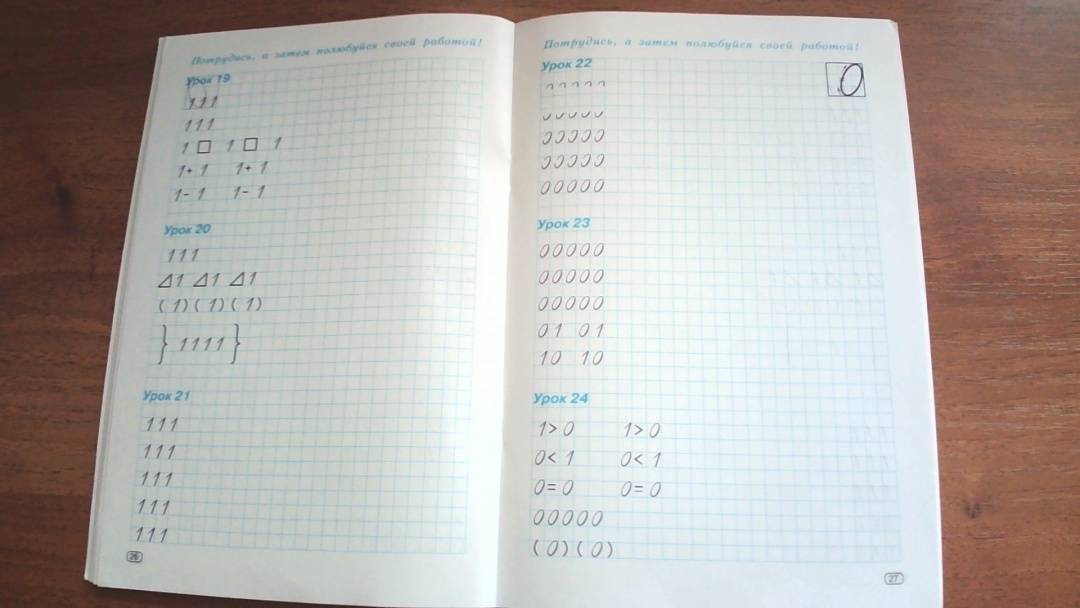 Потрудись, а затем полюбуйся своей работой!
Урок 19
1 1 1
1 1 1
1 □ 1 □ 1
1 + 1 1 + 1
1 - 1 1 - 1
Урок 20
1 1 1
△ 1 △ 1 △ 1
( 1 ) ( 1 ) ( 1 )
} 1 1 1 1 }
Урок 21
1 1 1
1 1 1
1 1 1
1 1 1
1 1 1
26
Потрудись, а затем полюбуйся своей работой!
Урок 22
0
0 0 0 0 0
0 0 0 0 0
0 0 0 0 0
Урок 23
0 0 0 0 0
0 0 0 0 0
0 0 0 0 0
0 1 0 1
1 0 1 0
Урок 24
1 > 0 1 > 0
0 < 1 0 < 1
0 = 0 0 = 0
0 0 0 0 0
( 0 ) ( 0 )
27